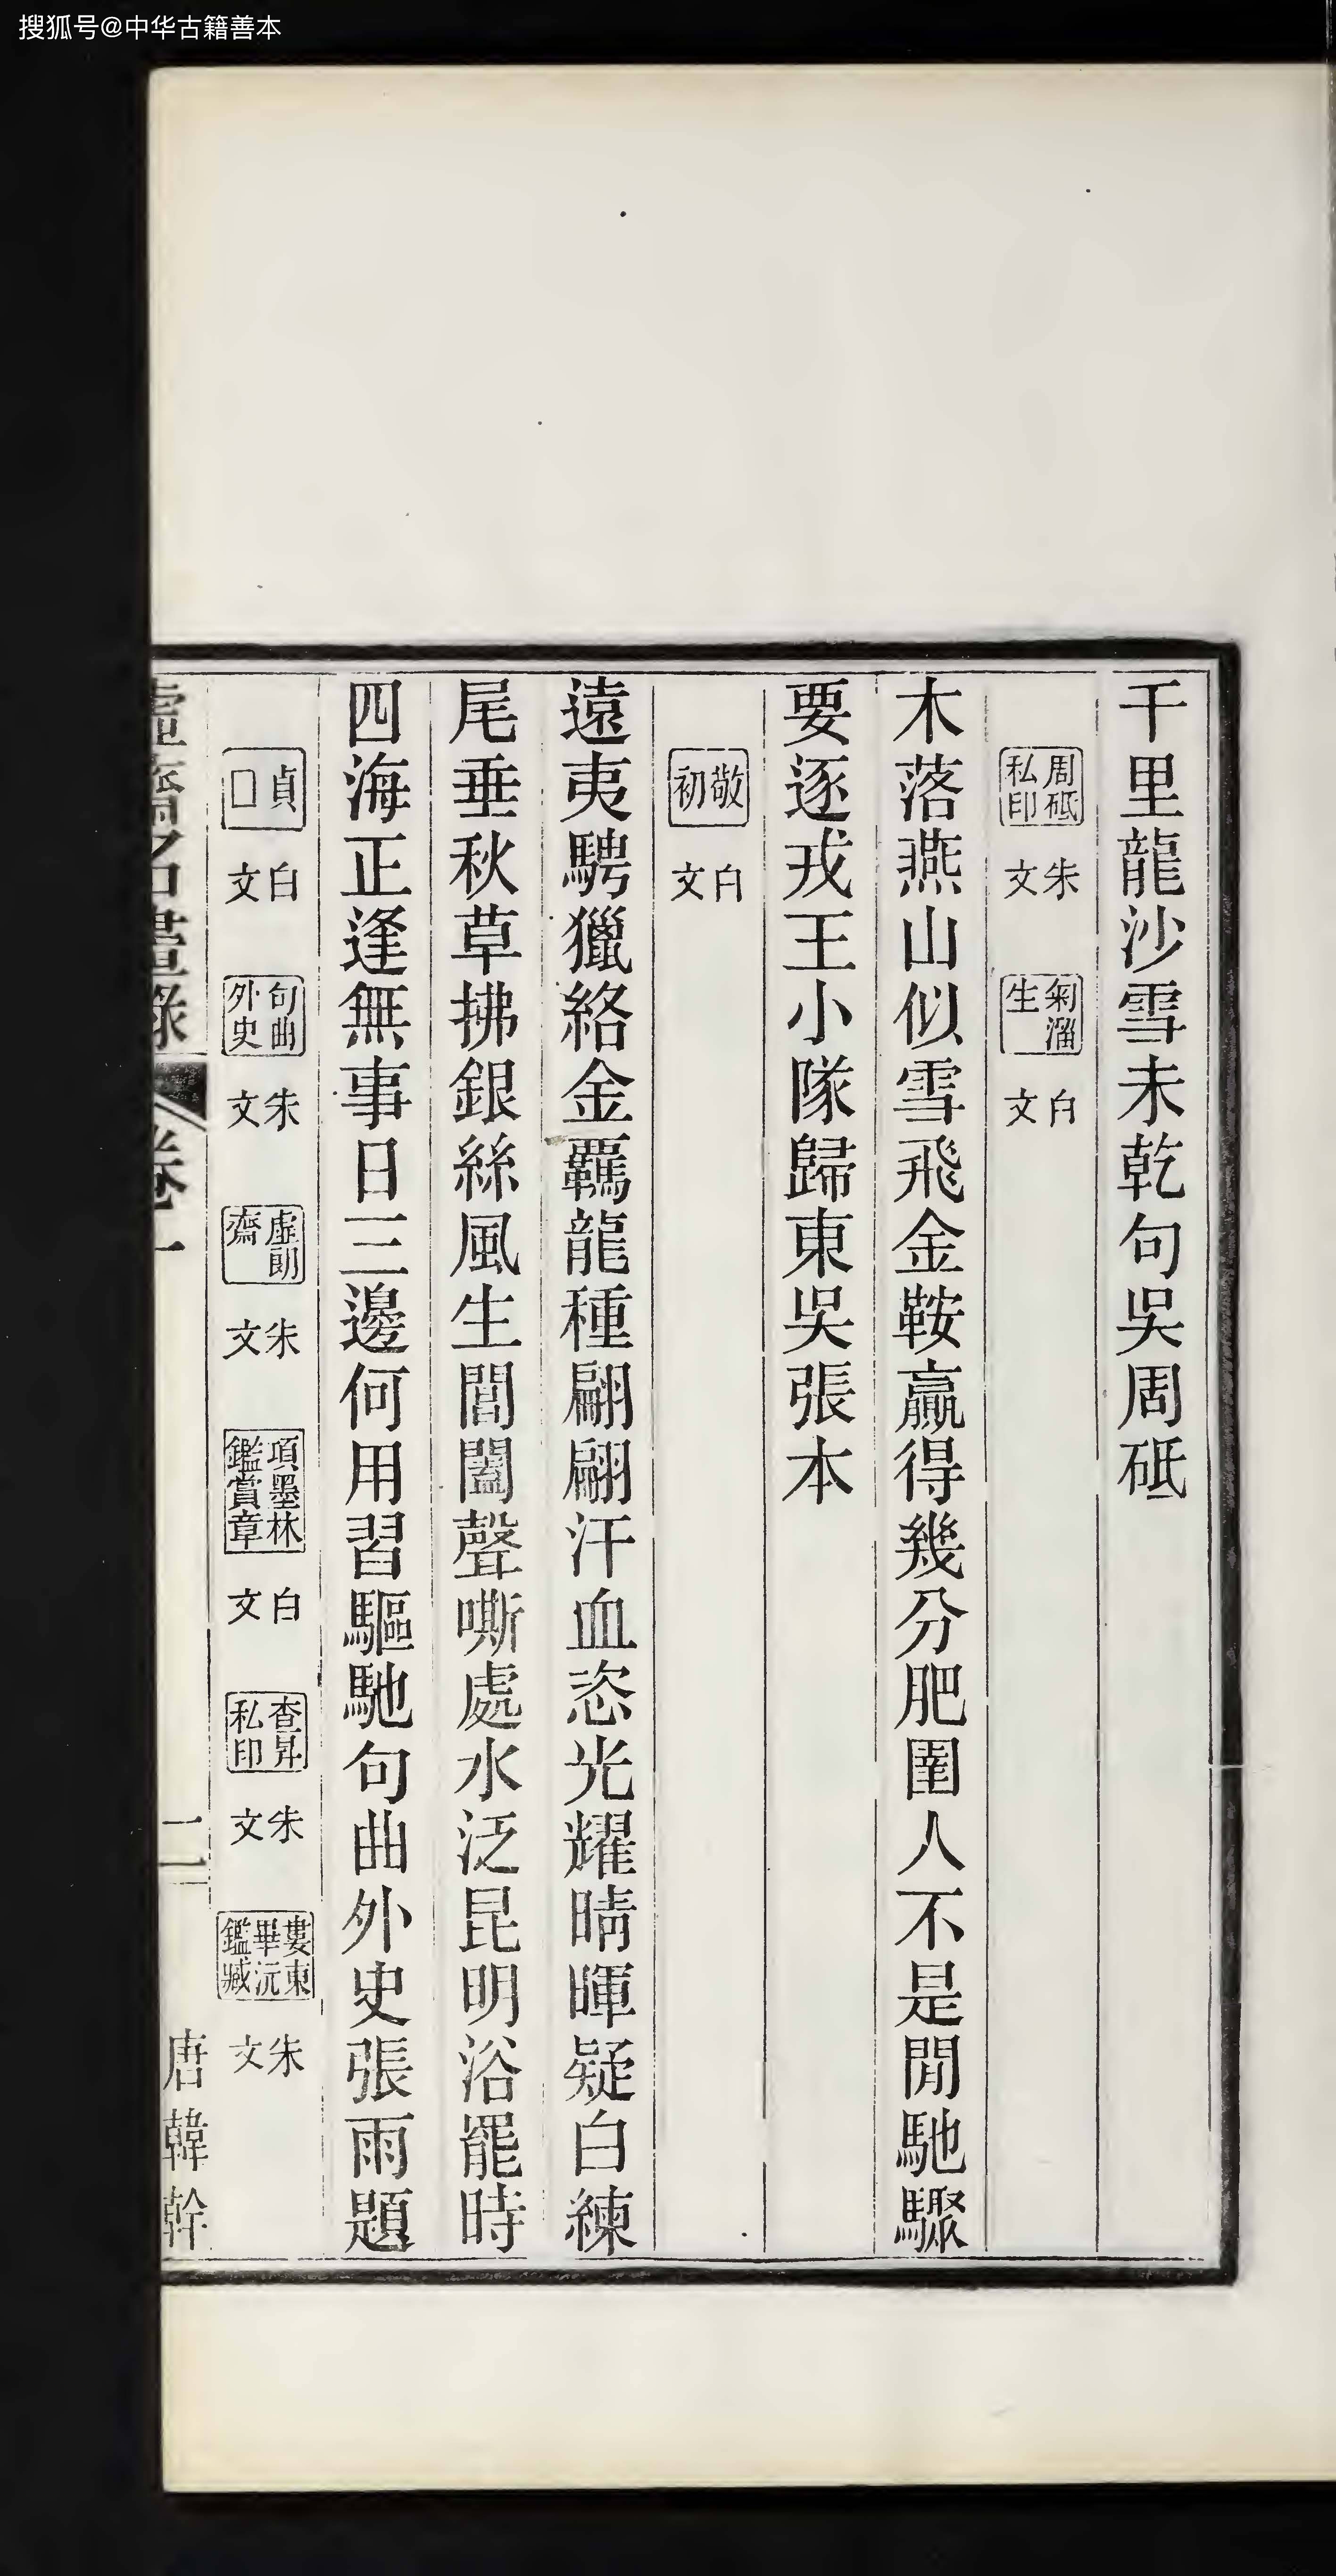 搜狐号@中华古籍善本
千里龍沙雪未乾句吳周砥
周砥私印 朱文 菊溜生 白文
木落燕山似雪飛金鞍贏得幾分肥圉人不是閒馳驟
要逐戎王小隊歸東吳張本
敬初 白文
遠夷騁獵絡金羈龍種翩翩汗血恣光耀晴暉疑白練
尾垂秋草拂銀絲風生閶闔聲嘶處水泛昆明浴罷時
四海正逢無事日三邊何用習驅馳句曲外史張雨題
貞□ 白文 句曲外史 朱文 虛朗齋 朱文 項墨林鑑賞章 白文 查昇私印 朱文 婁東畢沅鑑藏 朱文
虛齋名畫錄 卷一 二 唐韓幹